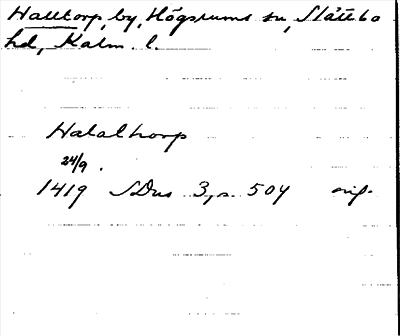 Halltorp, by, Högsrums sn, Slättbo
hd, Kalm. l.
Halalthorp
24/9.
1419 SDns 3, s. 504 orig.